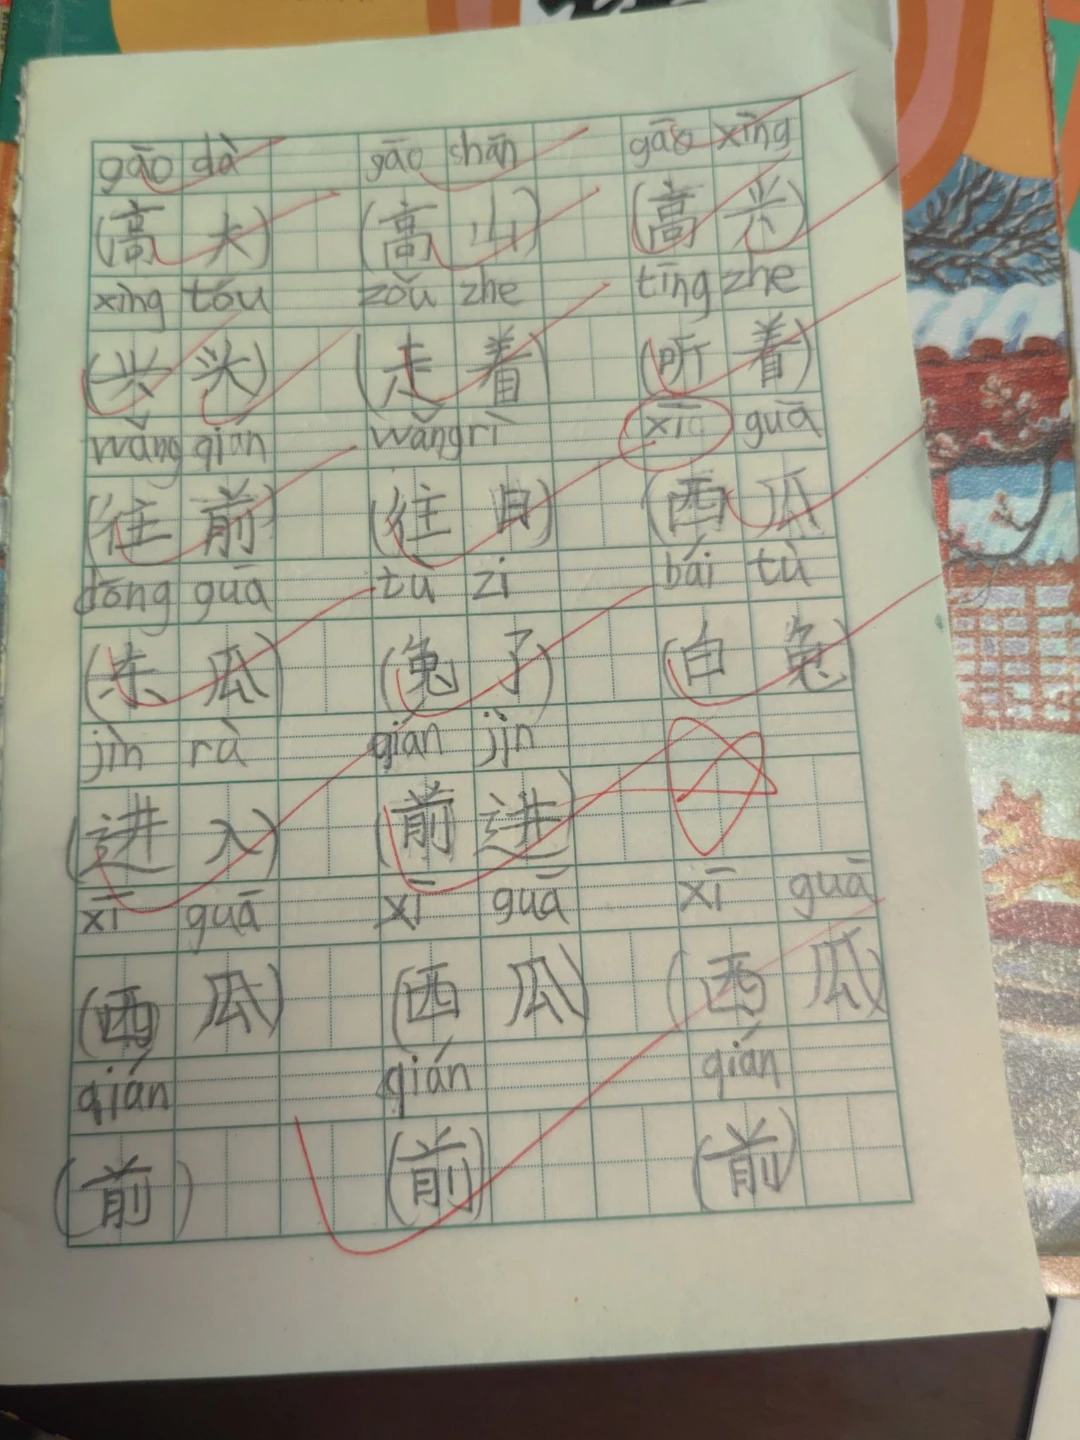 gāo dà gāo shān gāo xìng
(高大) (高山) (高兴)
xìng tóu zǒu zhe tīng zhe
(兴头) (走着) (听着)
wǎng qián wǎng rì xī guā
(往前) (往日) (西瓜)
dōng guā tù zi bái tù
(东瓜) (兔子) (白兔)
jìn rù qián jìn
(进入) (前进)
xī guā xī guā xī guā
(西瓜) (西瓜) (西瓜)
qián qián qián
(前) (前) (前)